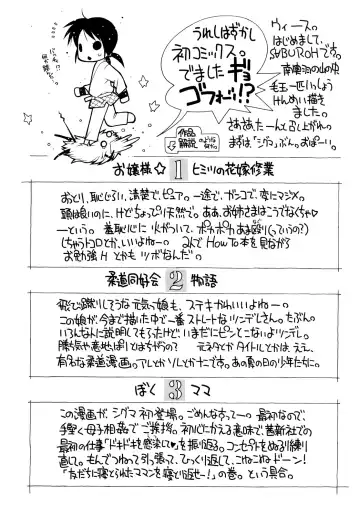 うれしはずかし
初コミックス。
でました
ギョ
ゴフォーッ!?
ウィース。
はじめまして、
SABUROHです。
南東京の山中
毛玉一匹いっしょう
けんめい描き
ました。
さああたーんと召し上がれ。
まずは、「シグマ」ぶん。おぱーい。
作品
解説
のような
もの。
お嬢様☆ 1 ヒミツの花嫁修業
おとり、恥じらい、清楚で、ピュア。一途で、ガンコで、変にマジメ。
頭は良いのに、けどちょっぴり天然で。ああ、お姉さまはこうでなくちゃ♡
ーという。羞恥心に火がついて、ポカポカあぁ殴り(っていうの?)
しちゃうトコロとか、いいよねー。2人でHow To本を見ながら
お勉強Hとかもツボなんだ。
柔道同好会 2 物語
飛び蹴りしそうな元気っ娘も、ステキかわいいよねー。
この娘が、今まで描いた中で一番ストレートなツンデレさん。たぶん。
いろんな人に説明してもらたけど、いまだにピンとこないよツンデレ。
勝ち気や意地っぱりとはちがうの? 元ネタとかタイトルとかは、ええ、
有名な柔道漫画。アレとかソレとかナニです。あの夏の日の少年たちに。
ぼく 3 ママ
この漫画が、シグマ初登場。ごめんなすってー。最初なので
手堅く母子相姦でご挨拶。初心にかえる意味で、茜新社での
最初の仕事「ドキドキを感染して♥」を振り返る。コンセプトをぬるり練り
直して。もんでつねって引っ張って、ひっくり返して、こねこねこねドーン!
「友だちに寝とられたママンを寝とり返せー!」の巻。という具合。